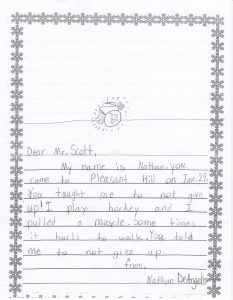 Dear Mr. Scott,
My name is Nathan. you
came to Pleasant Hill on Jan. 29.
You taught me to not give
up! I play hockey and I
pulled a muscle. Some times
it hurts to walk. You told
me to not give up.
from,
Nathan DeAngelo